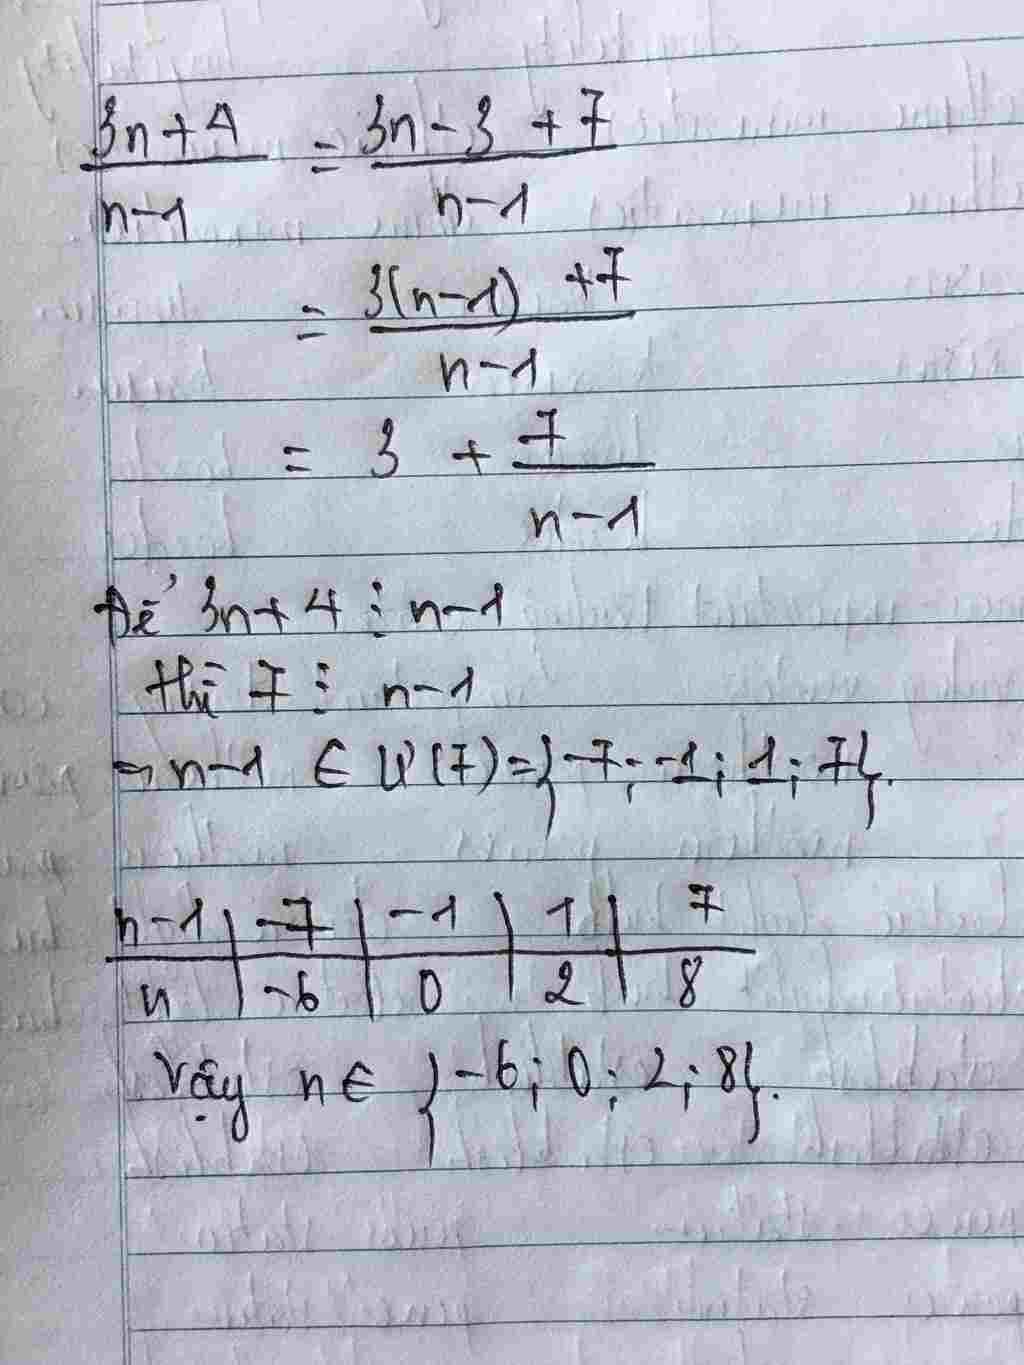 3n+4 / n-1 = 3n-3+7 / n-1
= 3(n-1)+7 / n-1
= 3 + 7 / n-1
Để 3n+4 ⋮ n-1
thì 7 ⋮ n-1
→ n-1 ∈ Ư(7)={-7; -1; 1; 7}.
n-1 | -7 | -1 | 1 | 7
n | -6 | 0 | 2 | 8
Vậy n∈ {-6; 0; 2; 8}.